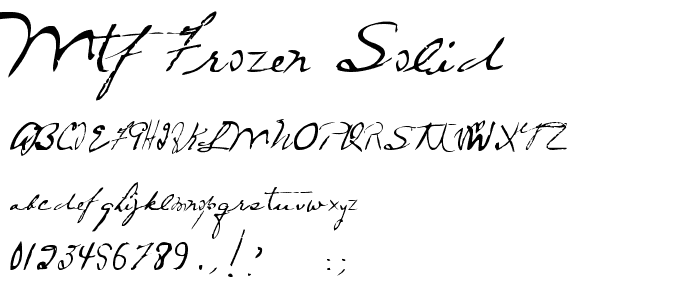 Mtf Frozen Solid
ABCDEFGHIJKLMNOPQRSTUVWXYZ
abcdefghijklmnopqrstuvwxyz
0123456789.,!' :;